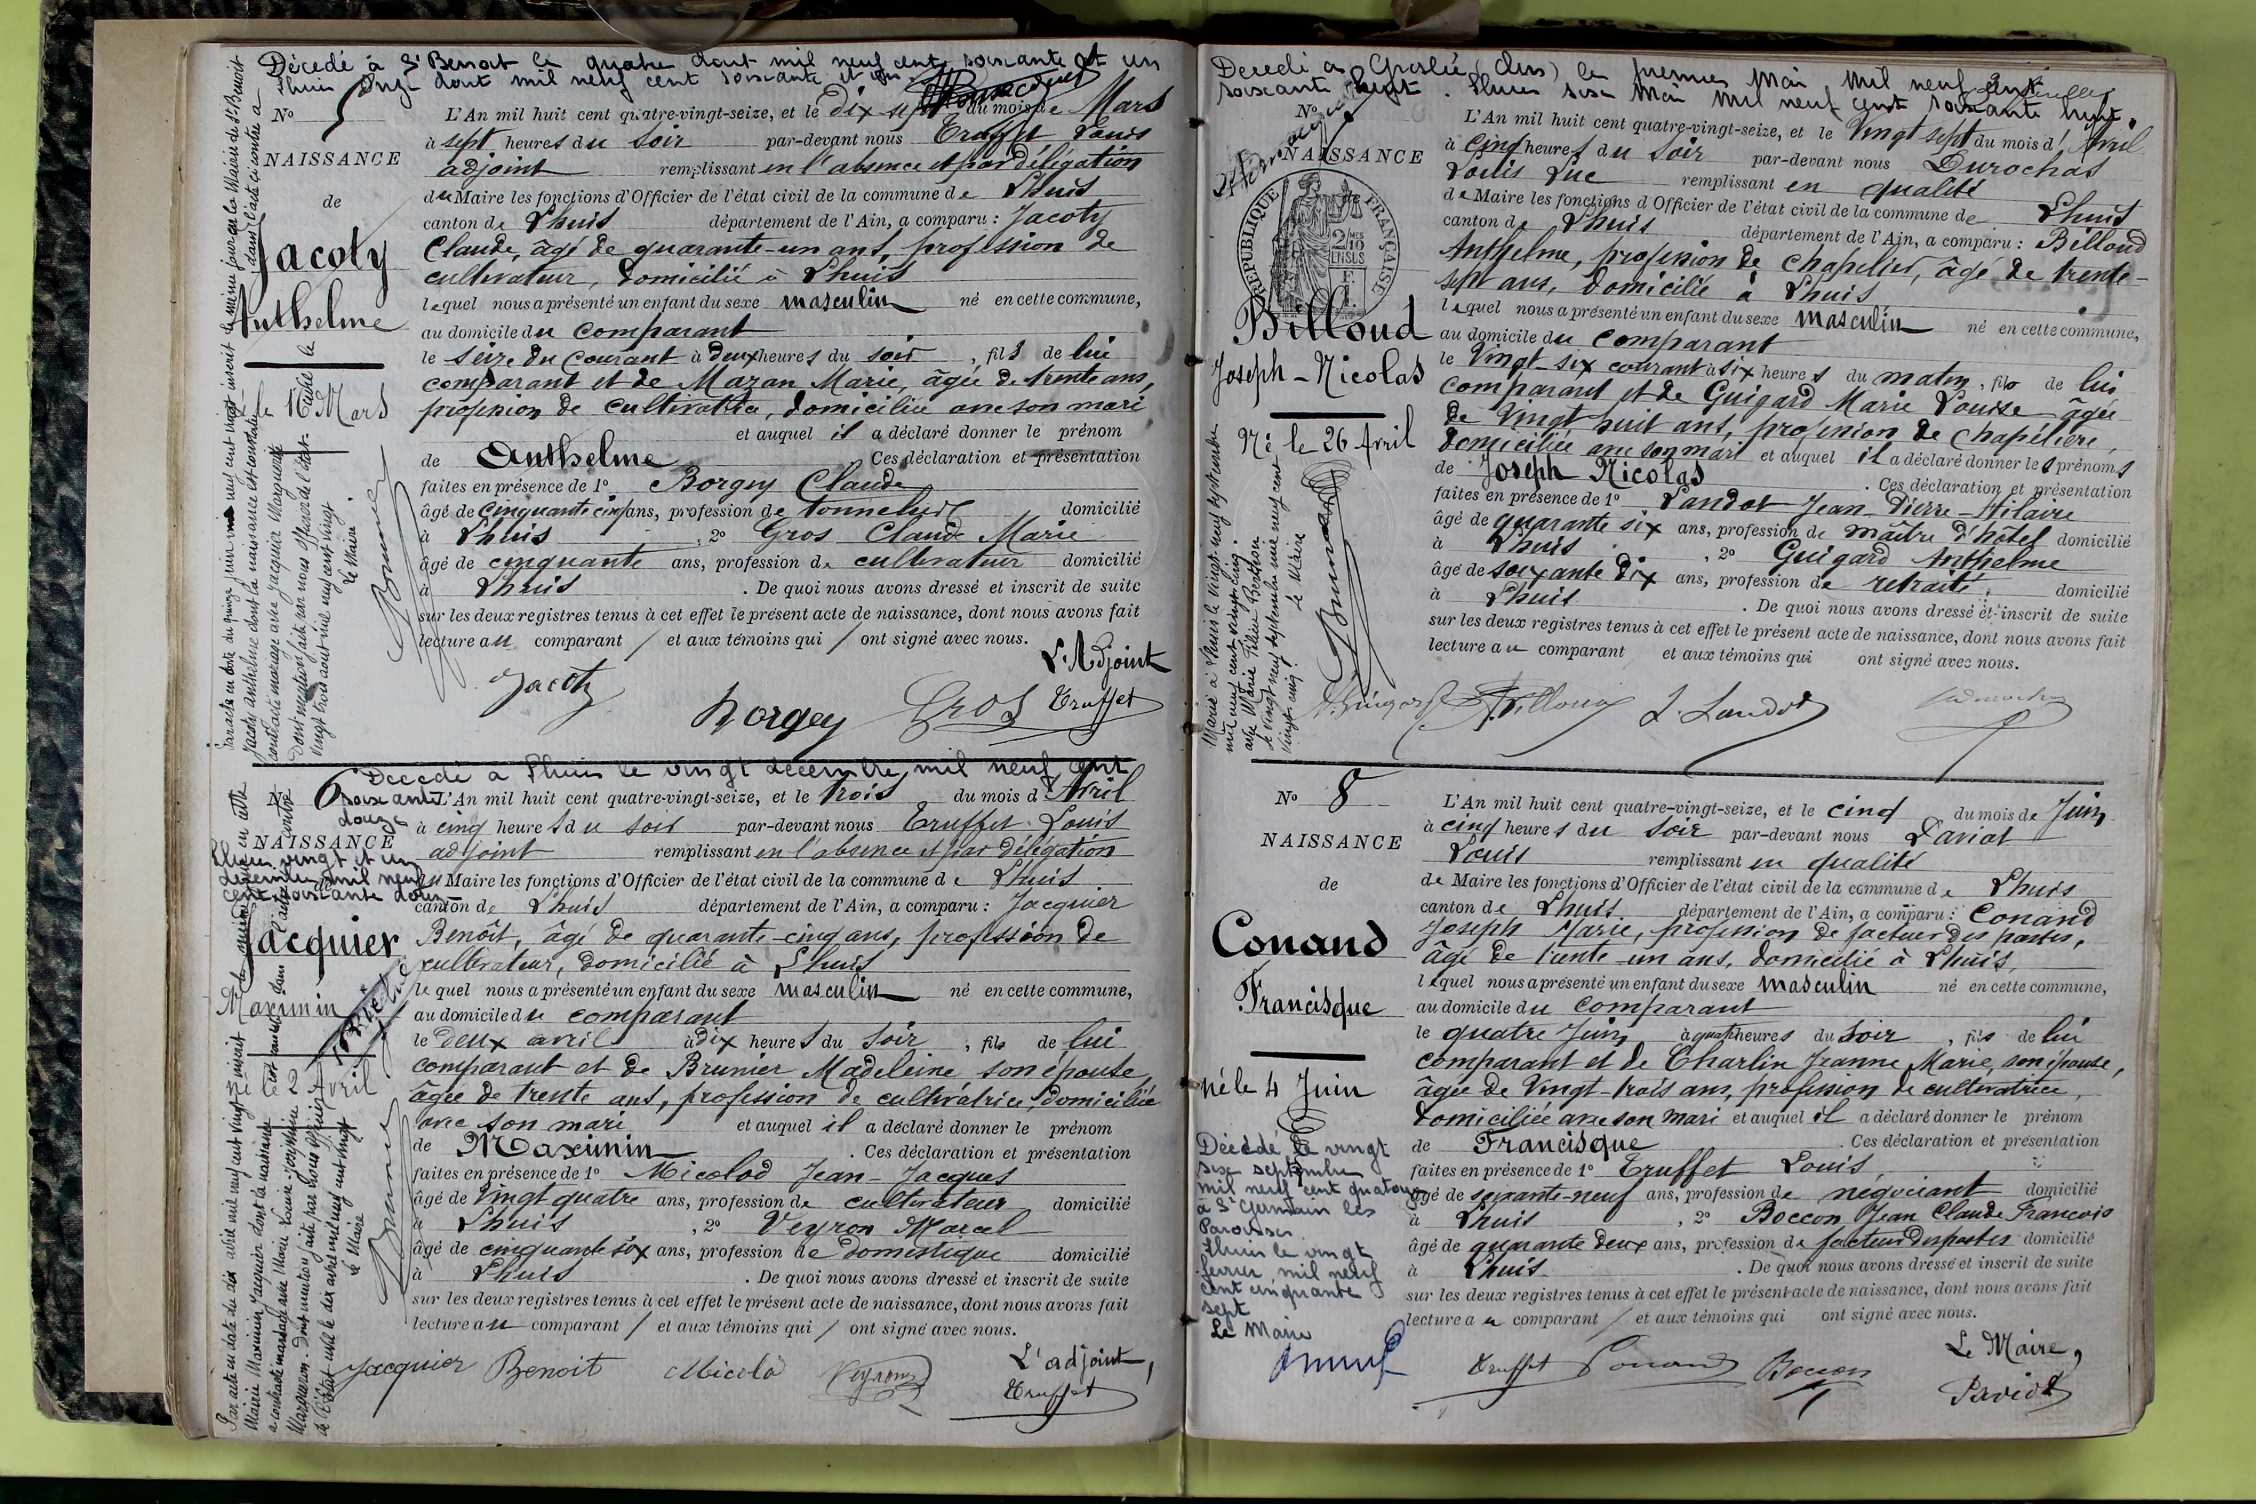 Décédé à St Benoit le quatre août mil neuf cent soixante et un
Lhuis onze août mil neuf cent soixante et un
No 5
NAISSANCE
de
Jacoty
Anthelme
le 16 Mars
L'An mil huit cent quatre-vingt-seize, et le dix-sept du mois de Mars
à sept heures du soir par-devant nous Truffet Louis
adjoint remplissant en l'absence et par délégation
du Maire les fonctions d'Officier de l'état civil de la commune de Lhuis
canton de Lhuis département de l'Ain, a comparu : Jacoty
Claude, âgé de quarante-un ans, profession de
cultivateur, domicilié à Lhuis
lequel nous a présenté un enfant du sexe masculin né en cette commune,
au domicile du comparant
le seize du courant à deux heures du soir, fils de lui
comparant et de Mazan Marie, âgée de trente ans,
profession de cultivatrice, domiciliée avec son mari
et auquel il a déclaré donner le prénom
de Anthelme Ces déclaration et présentation
faites en présence de 1o Borgey Claude
âgé de cinquante cinq ans, profession de tonnelier domicilié
à Lhuis, 2o Gros Claude Marie
âgé de cinquante ans, profession de cultivateur domicilié
à Lhuis. De quoi nous avons dressé et inscrit de suite
sur les deux registres tenus à cet effet le présent acte de naissance, dont nous avons fait
lecture au comparant / et aux témoins qui / ont signé avec nous.
L'Adjoint
Jacoty Borgey Gros Truffet
Par acte en date du quinze juin mil neuf cent vingt inscrit le même jour sur la Mairie de St Benoit
Jacoty Anthelme dont la naissance est constatée dans l'acte ci contre a
contracté mariage avec Jacquier Marguerite
Dont mention faite par nous officier de l'état civil le
vingt trois août mil neuf cent vingt
Le Maire
Décédé à Lhuis le vingt décembre mil neuf cent
soixante
douze
Lhuis vingt et un
décembre mil neuf
cent soixante douze
No 6
NAISSANCE
de
Jacquier
Maximin
2 Avril
L'An mil huit cent quatre-vingt-seize, et le trois du mois d'Avril
à cinq heures du soir par-devant nous Truffet Louis
adjoint remplissant en l'absence et par délégation
du Maire les fonctions d'Officier de l'état civil de la commune de Lhuis
canton de Lhuis département de l'Ain, a comparu : Jacquier
Benoît, âgé de quarante-cinq ans, profession de
cultivateur, domicilié à Lhuis
lequel nous a présenté un enfant du sexe masculin né en cette commune,
au domicile du comparant
le deux avril à dix heures du soir, fils de lui
comparant et de Brunier Madeleine son épouse,
âgée de trente ans, profession de cultivatrice, domiciliée
avec son mari et auquel il a déclaré donner le prénom
de Maximin. Ces déclaration et présentation
faites en présence de 1o Micolod Jean-Jacques
âgé de vingt quatre ans, profession de cultivateur domicilié
à Lhuis, 2o Veyron Marcel
âgé de cinquante six ans, profession de domestique domicilié
à Lhuis. De quoi nous avons dressé et inscrit de suite
sur les deux registres tenus à cet effet le présent acte de naissance, dont nous avons fait
lecture au comparant / et aux témoins qui / ont signé avec nous.
Jacquier Benoit Micolo Veyron L'adjoint,
Truffet
Par acte en date du dix avril mil neuf cent vingt et inscrit le même jour en cette
Mairie Maximin Jacquier dont la naissance est constatée dans l'acte ci contre
a contracté mariage avec Marie Louise Joséphine
Margueron. Dont mention faite par nous officier
de l'état civil le dix avril mil neuf cent vingt
Le Maire
Décédé à Groslée (Ain) le premier Mai mil neuf cent
soixante huit. Lhuis six Mai mil neuf cent soixante huit.
No 7
NAISSANCE
RÉPUBLIQUE FRANÇAISE
2 MES
10
EN SUS
Billoud
Joseph-Nicolas
Né le 26 Avril
L'An mil huit cent quatre-vingt-seize, et le Vingt sept du mois d'Avril
à Cinq heures du soir par-devant nous Durochat
Louis Luc remplissant en qualité
de Maire les fonctions d'Officier de l'état civil de la commune de Lhuis
canton de Lhuis département de l'Ain, a comparu : Billoud
Anthelme, profession de chapelier, âgé de trente-
sept ans, domicilié à Lhuis
lequel nous a présenté un enfant du sexe masculin né en cette commune,
au domicile du comparant
le Vingt-six courant à six heures du matin, fils de lui
comparant et de Guigard Marie Louise âgée
de Vingt huit ans, profession de chapelière,
domiciliée avec son mari et auquel il a déclaré donner les prénoms
de Joseph Nicolas. Ces déclaration et présentation
faites en présence de 1o Landot Jean-Pierre-Hilaire
âgé de quarante six ans, profession de maître d'hôtel domicilié
à Lhuis, 2o Guigard Anthelme
âgé de soixante dix ans, profession de retraité, domicilié
à Lhuis. De quoi nous avons dressé et inscrit de suite
sur les deux registres tenus à cet effet le présent acte de naissance, dont nous avons fait
lecture au comparant et aux témoins qui ont signé avec nous.
A. Guigard Billoud J. Landot Durochat
Marié à Lhuis le vingt neuf septembre
mil neuf cent vingt cinq
avec Marie
le vingt neuf septembre mil neuf cent
vingt cinq Le Maire
No 8
NAISSANCE
de
Conand
Francisque
né le 4 Juin
Décédé le vingt
six septembre
mil neuf cent quatorze
à St Germain les
Paroisses
Lhuis le vingt
février mil neuf
cent cinquante
sept
Le Maire
L'An mil huit cent quatre-vingt-seize, et le cinq du mois de Juin
à cinq heures du soir par-devant nous Paviot
Louis remplissant en qualité
de Maire les fonctions d'Officier de l'état civil de la commune de Lhuis
canton de Lhuis département de l'Ain, a comparu : Conand
Joseph Marie, profession de facteur des postes,
âgé de trente-un ans, domicilié à Lhuis,
lequel nous a présenté un enfant du sexe masculin né en cette commune,
au domicile du comparant
le quatre Juin à quatre heures du soir, fils de lui
comparant et de Charlin Jeanne Marie, son épouse,
âgée de Vingt-trois ans, profession de cultivatrice,
domiciliée avec son mari et auquel il a déclaré donner le prénom
de Francisque. Ces déclaration et présentation
faites en présence de 1o Truffet Louis
âgé de soixante-neuf ans, profession de négociant domicilié
à Lhuis, 2o Boccon Jean Claude François
âgé de quarante deux ans, profession de facteur des postes domicilié
à Lhuis. De quoi nous avons dressé et inscrit de suite
sur les deux registres tenus à cet effet le présent acte de naissance, dont nous avons fait
lecture au comparant / et aux témoins qui ont signé avec nous.
Le Maire,
Truffet Conand Boccon Paviot